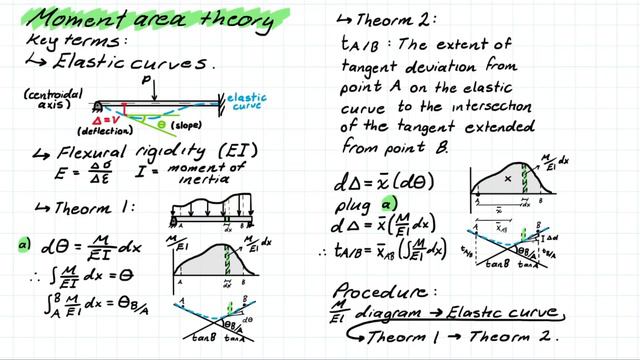 Moment area theory
Key terms:
↳ Elastic curves.
P
(centroidal axis)
elastic curve
Δ = V
(deflection)
θ (slope)
↳ Flexural rigidity (EI)
E = Δσ/Δε I = moment of inertia
↳ Theorm 1:
dx
a) dθ = M/EI dx
∴ ∫ M/EI dx = θ
∫_A^B M/EI dx = θ_B/A
M/EI
M/EI dx
A
dx
B
A
B
θ_B/A
dθ
tanB
tanA
↳ Theorm 2:
t_A/B : The extent of
tangent deviation from
point A on the elastic
curve to the intersection
of the tangent extended
from point B.
dΔ = x̄ (dθ)
plug a)
dΔ = x̄ (M/EI dx)
∴ t_A/B = x̄_AB (∫ M/EI dx)
M/EI dx
x
A
dx
B
x̄
x̄_AB
A
B
Δd
t_A/B
t_B/A
tanB
tanA
Procedure:
M/EI diagram → Elastic curve
↳ Theorm 1 → Theorm 2.